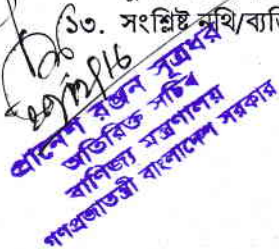 ১৩. সংশ্লিষ্ট নথি/ব্যক্তি
প্রানেশ রঞ্জন সূত্রধর
অতিরিক্ত সচিব
বাণিজ্য মন্ত্রণালয়
গণপ্রজাতন্ত্রী বাংলাদেশ সরকার